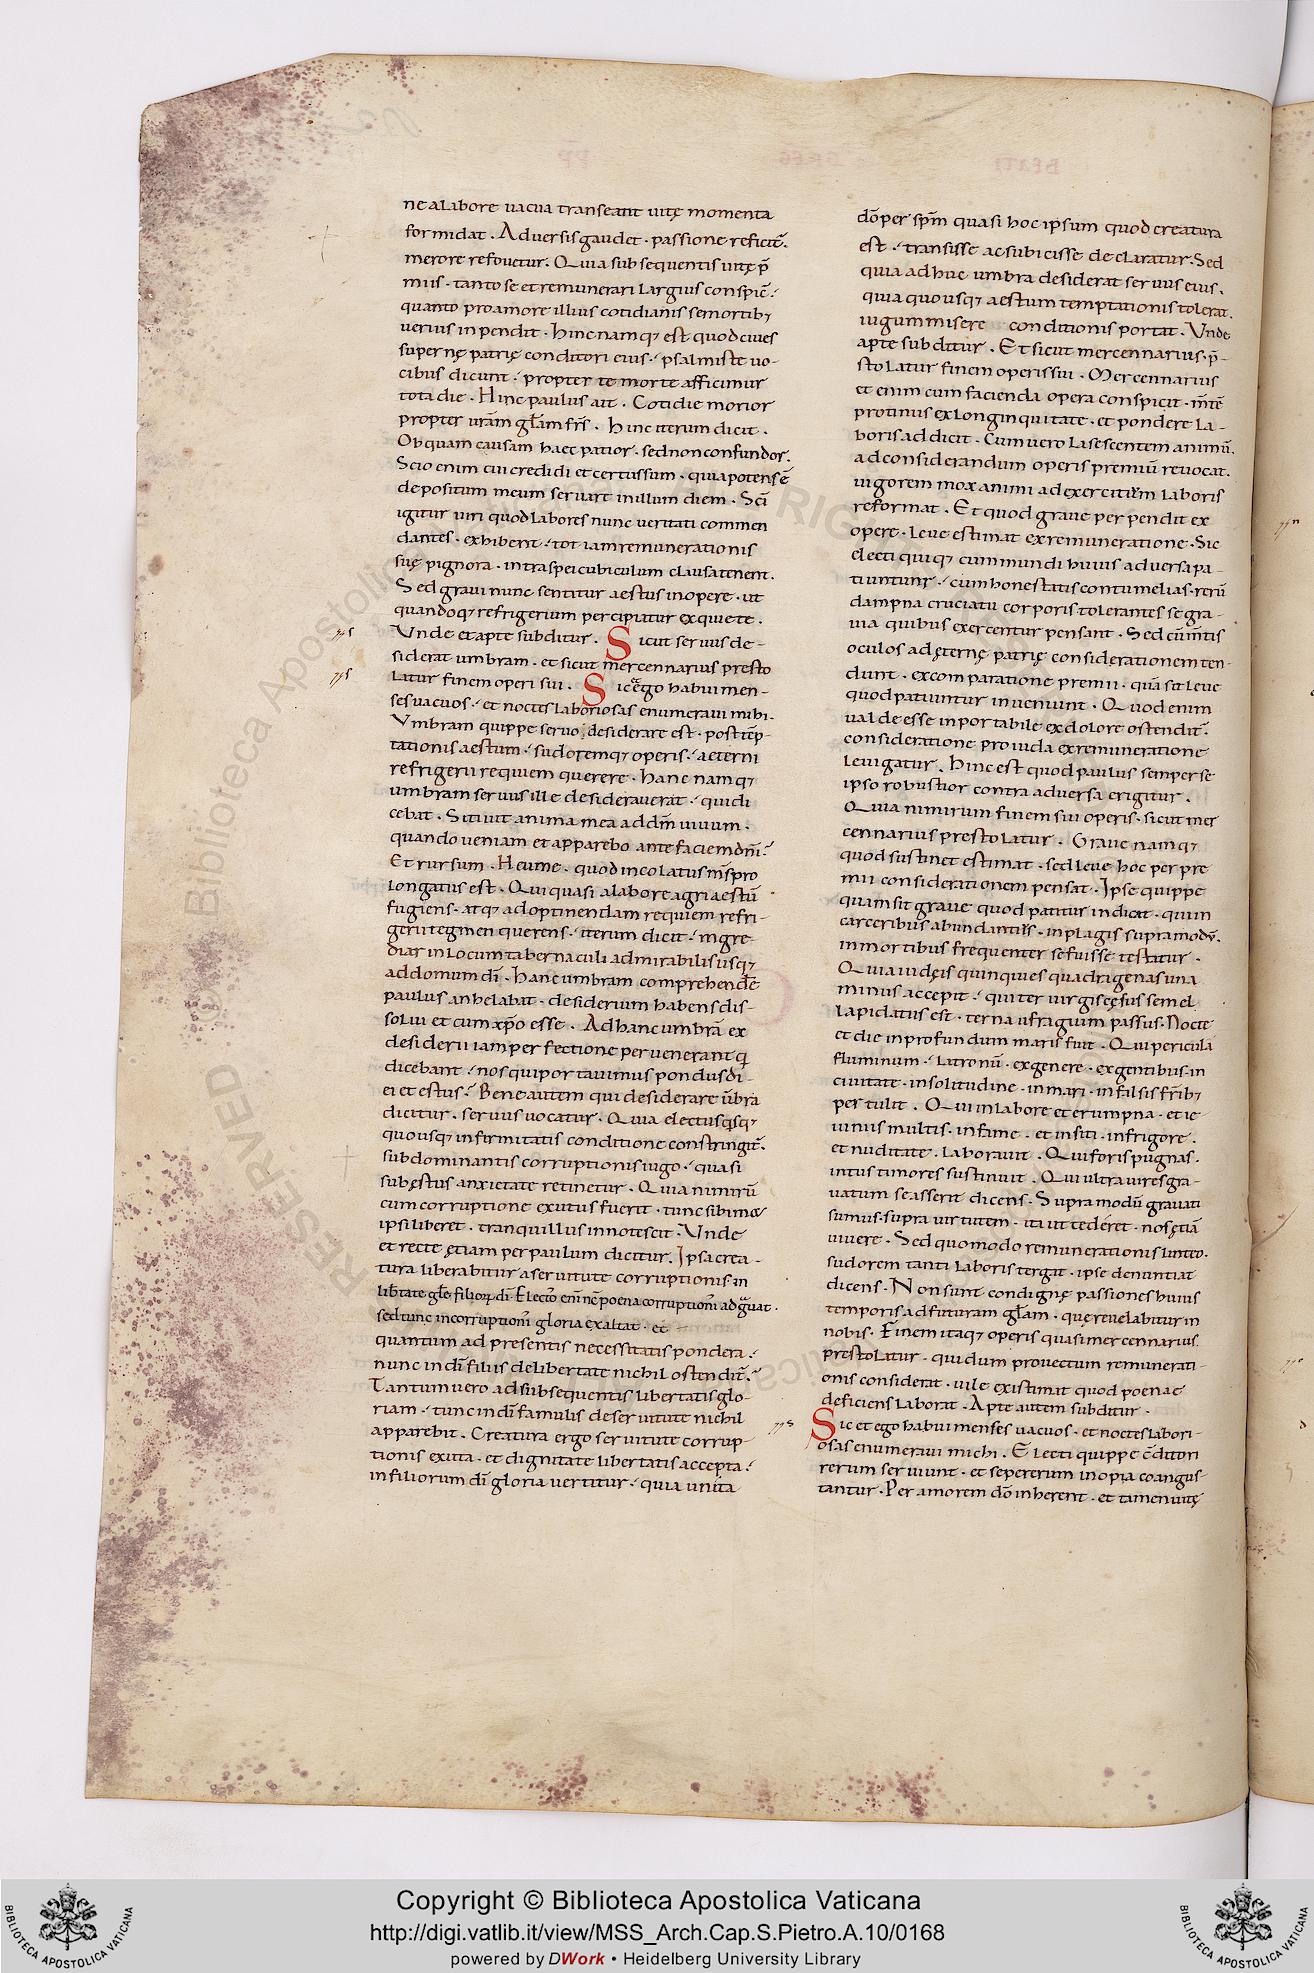 ne alabore uacua transeant uitę momenta
formidat. Aduersis gaudet. passione reficit̃.
merore refouetur. Quia subsequentis uitę p̄
miis. tanto se et remunerari largius conspic̃.
quanto pro amore illius cotidianis se mortib;
uerius inpendit. hinc namq; est quod ciues
supernę patrię conditori eius. psalmiste uo-
cibus dicunt. propter te morte afficimur
tota die. Hinc paulus ait. Cotidie morior
propter ur̄am gl̄am fr̄s. hinc iterum dicit.
Ob quam causam haec patior. sed non confundor.
Scio enim cui credidi et certus sum. quia potens ē
depositum meum seruare in illum diem. Sc̄i
igitur uiri quod labores nunc ueritati commen
dantes. exhibent. tot iam remunerationis
suę pignora. intra spei cubiculum clausa tenent.
Sed graui nunc sentitur aestus in opere. ut
quandoq; refrigerium percipiatur ex quiete.
Vnde et apte subditur. Sicut seruus de-
siderat umbram. et sicut mercennarius presto
latur finem operi sui. Sic &ego habui men-
ses uacuos. et noctes laboriosas enumeraui mihi.
Vmbram quippe seruo desiderare est. post tēp-
tationis aestum. sudoremq; operis. aeterni
refrigerii requiem querere. hanc namq;
umbram seruus ille desiderauerat. qui di
cebat. Sitiuit anima mea ad dm̄ uiuum.
quando ueniam et apparebo ante faciem dn̄i.
Et rursum. Heu me. quod incolatus m̄s pro
longatus est. Qui quasi alabore agri aestū
fugiens. atq; adoptinendam requiem refri-
gerii tegmen querens. iterum dicit. ingre-
diar in locum tabernaculi admirabilis usq;
ad domum dī. hanc umbram comprehendē
paulus anhelabat. desiderium habens dis-
solui et cum xp̄o esse. Ad hanc umbrā ex
desiderii iam perfectione peruenerant q̄
dicebant. nos qui portauimus pondus di-
ei et estus. Bene autem qui desiderare ūbrā
dicitur. seruus uocatur. Quia electus qsq;
quousq; infirmitatis conditione constringit̃.
sub dominantis corruptionis iugo. quasi
sub ęstus anxietate retinetur. Quia nimirū
cum corruptione exutus fuerit. tunc sibimet
ipsi liber et. tranquillus innotescit. Vnde
et recte ętiam per paulum dicitur. Ipsa crea-
tura liberabitur a seruitute corruptionis. in
lib̄tate gl̄e filioꝝ dī. Electos eni̅ nc̄ poena corruptionis adgrauat.
sed tunc incorruptionis gloria exaltat. et
quantum ad presentis necessitatis pondera.
nunc in dī filiis de libertate nichil ostendit̃.
Tantum uero ad subsequentis libertatis glo-
riam. tunc in dī famulis de seruitute nichil
apparebit. Creatura ergo seruitute corrup-
tionis exuta. et dignitate libertatis accepta.
in filiorum dī gloria uertitur. quia unita
dō per sp̄m quasi hoc ipsum quod creatura
est. transisse ac subicisse declaratur. Sed
qui adhuc umbra desiderat seruus eius.
quia quousq; aestum temptationis tolerat.
iugum misere conditionis portat. Vnde
apte subditur. Et sicut mercennarius. p̄-
stolatur finem operis sui. Mercennarius
etenim cum facienda opera conspicit. mn̄tē
protinus ex longinquitate. et pondere la-
boris addicit. Cum uero lasescentem animū.
ad considerandum operis premiū reuocat.
uigorem mox animi ad exercitium laboris
reformat. Et quod graue perpendit ex
opere. leue estimat ex remuneratione. Sic
electi quiq; cum mundi huius aduersa pa-
tiuntunr. cum honestatis contumelias. rerū
dampna cruciatu corporis tolerantes se gra-
uia quibus exercentur pensant. Sed cūm̄tis
oculos ad ęternę patrię considerationem ten-
dunt. ex comparatione premii. quā sit leue
quod patiuntur inueniunt. Quod enim
ualde esse inportabile ex dolore ostendit̃.
consideratione prouida ex remuneratione
leuigatur. Hinc est quod paulus semper se
ipso robustior contra aduersa erigitur.
Quia nimirum finem sui operis. sicut mer
cennarius prestolatur. Graue namq;
quod sustinet estimat. sed leue hoc per pre
mii considerationem pensat. Ipse quippe
quam sit graue quod patitur indicat. qui in
carceribus abundantius. in plagis supra modū.
in mortibus frequenter se fuisse testatur.
Qui a iudęis quinquies quadragenas una
minus accepit. qui ter uirgis cęsus semel
lapidatus est. ter naufragium passus. Nocte
et die in profundum maris fuit. Qui pericula
fluminum. latronū. ex genere. ex gentibus. in
ciuitate. in solitudine. in mari. in falsis fr̄ib;
pertulit. Qui in labore et erumpna. et ie-
iuniis multis. in fame. et in siti. in frigore.
et nuditate. laborauit. Qui foris pugnas.
intus timores sustinuit. Qui ultra uires gra-
uatum se asserit dicens. Supra modū grauati
sumus. supra uirtutem. ita ut tederet. nos ętiā
uiuere. Sed quomodo remunerationis linteo.
sudorem tanti laboris tergat. ipse denuntiat
dicens. Non sunt condignę passiones huius
temporis ad futuram gl̄am. quę reuelabitur in
nobis. Finem itaq; operis quasi mercennarius
prestolatur. qui dum prouectum remunerati-
onis considerat. uile existimat quod poenae
deficiens laborat. Apte autem subditur.
Sic et ego habui menses uacuos. et noctes labori-
osas enumeraui michi. Electi quippe c̄ditori
rerum seruiunt. et sepe rerum inopia coangus-
tantur. Per amorem dō inherent. et tamen uitę
Copyright © Biblioteca Apostolica Vaticana
http://digi.vatlib.it/view/MSS_Arch.Cap.S.Pietro.A.10/0168
powered by DWork • Heidelberg University Library
BIBLIOTECA APOSTOLICA VATICANA
BIBLIOTECA APOSTOLICA VATICANA